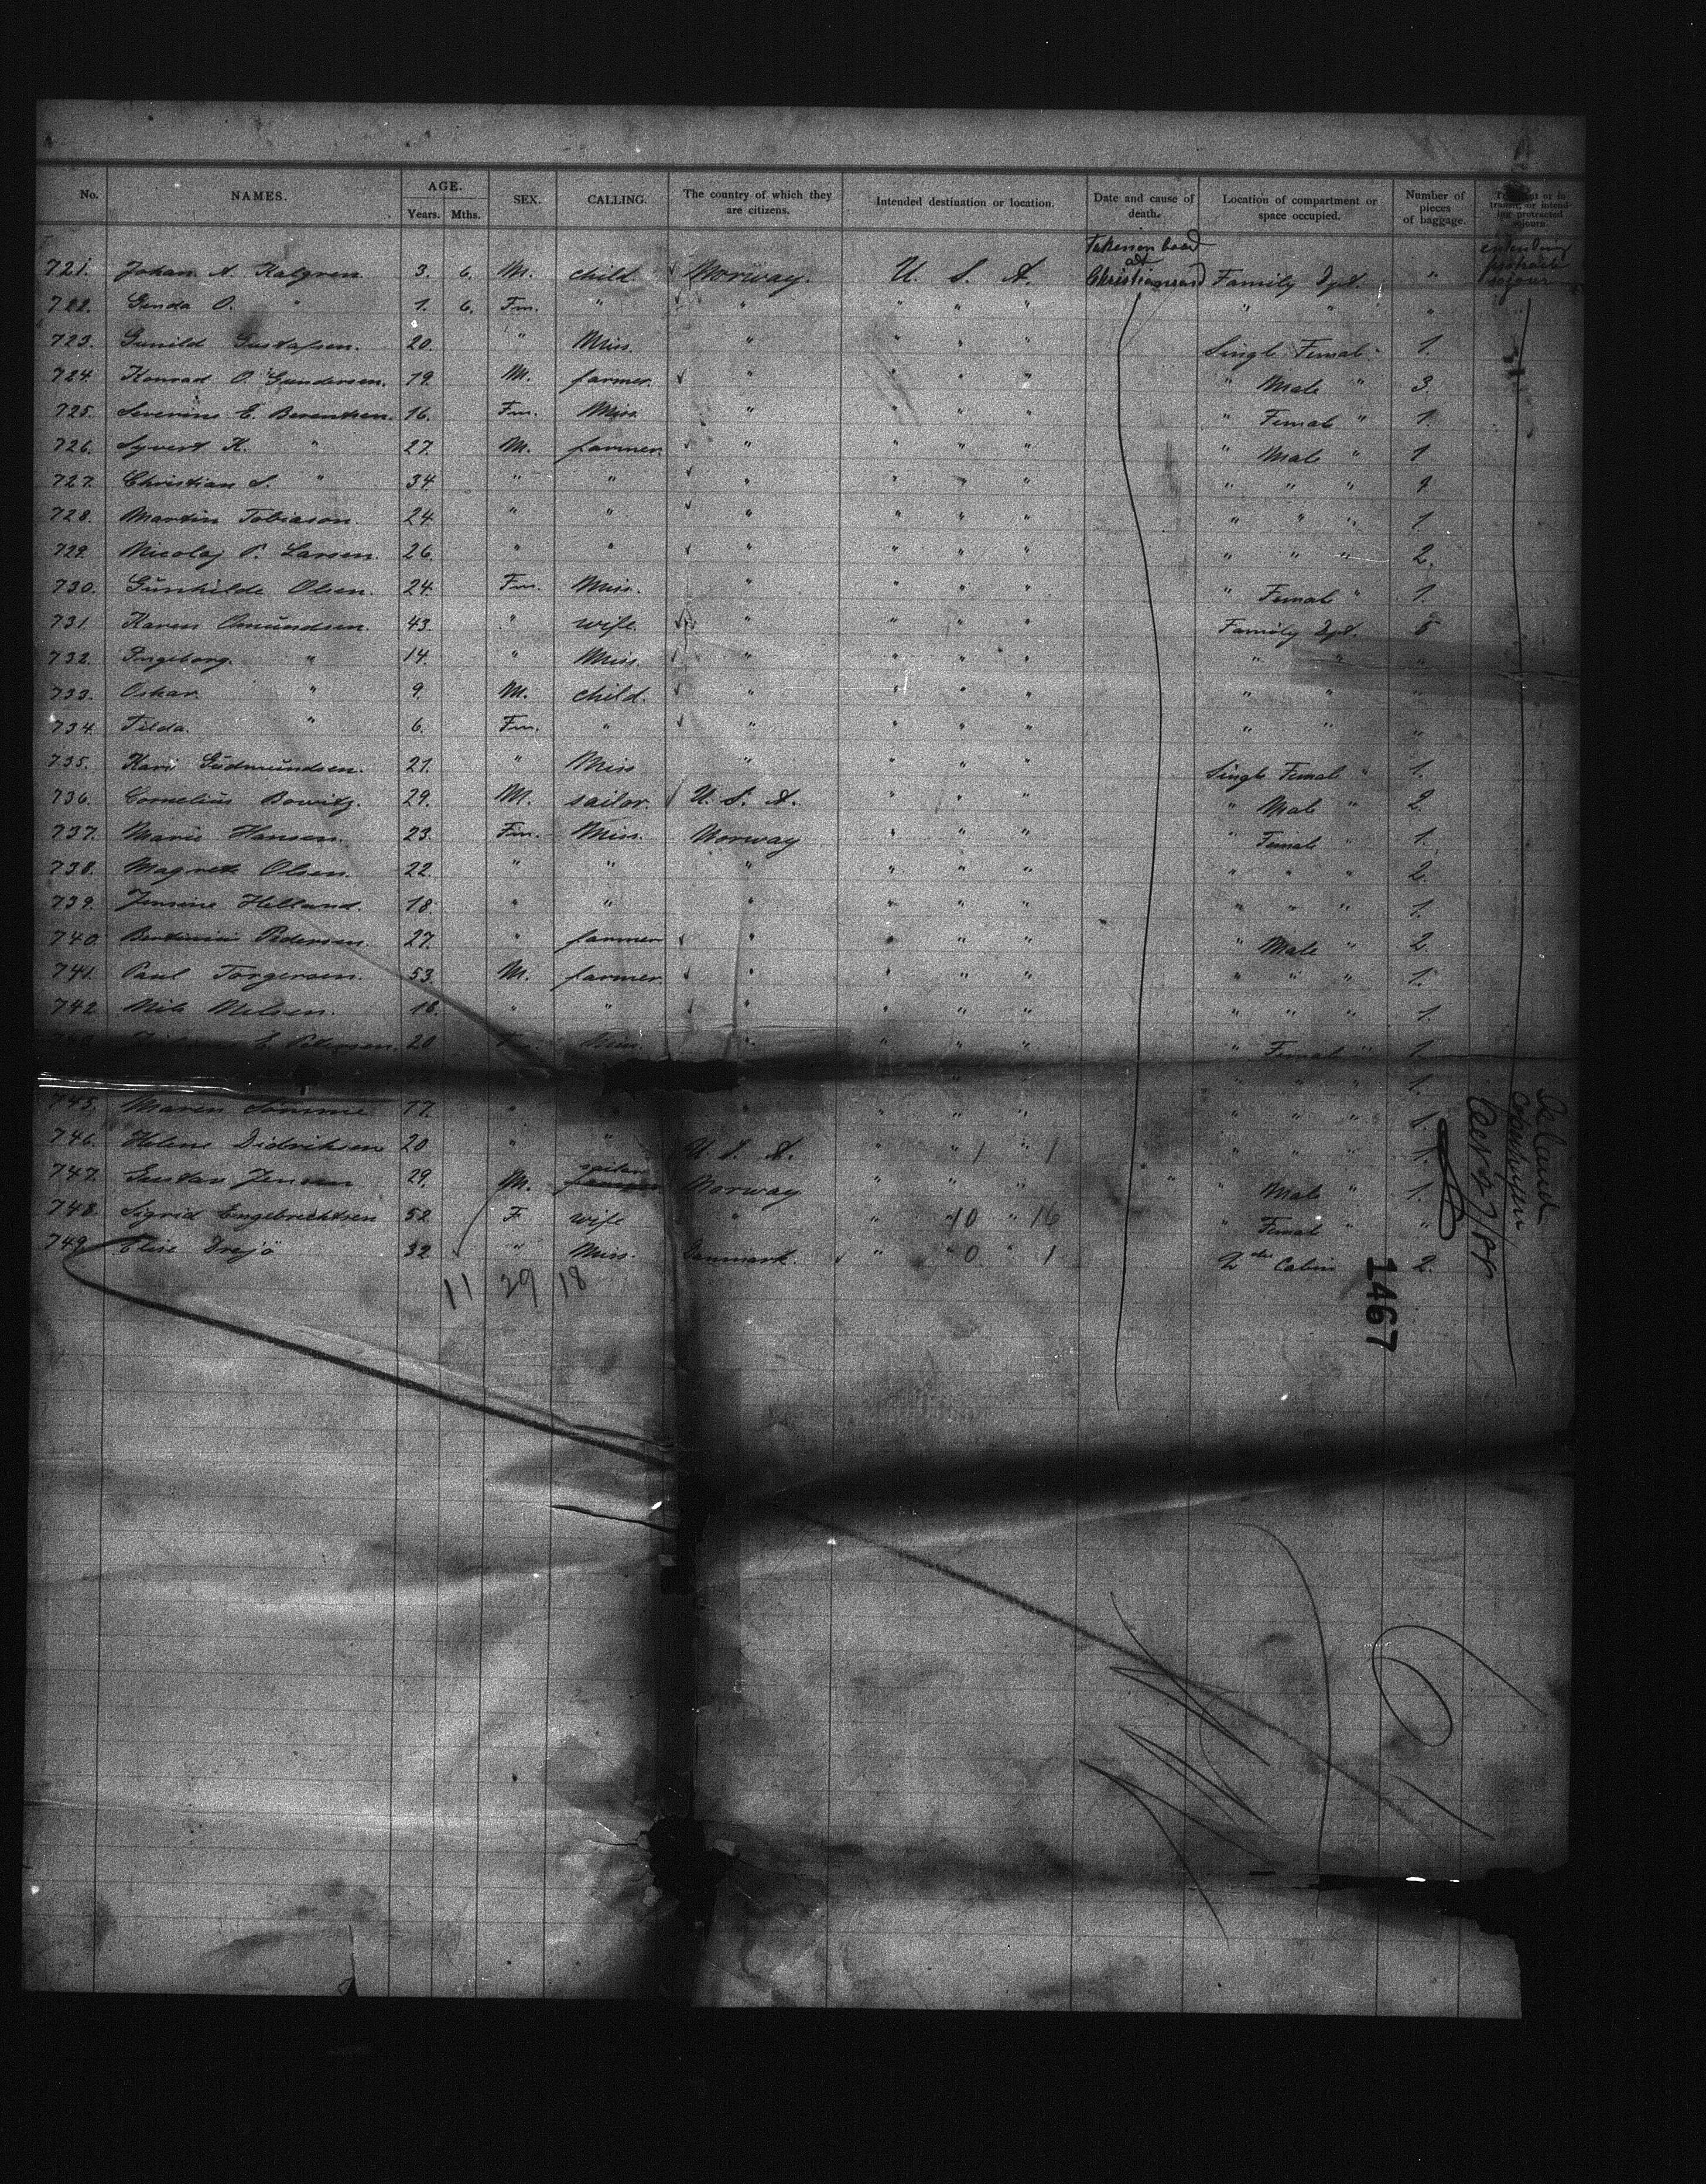 No. NAMES. AGE. Years. Mths. SEX. CALLING. The country of which they are citizens. Intended destination or location. Date and cause of death. Location of compartment or space occupied. Number of pieces of baggage.
Taken on board at Christiansand
721. Johan A. Kalgren. 3. 6. M. child Norway. U. S. A. Family Dpt. "
722. Genda O. " 1. 6. Fm. " " " " " " " "
723. Gunild Gustafsen. 20. " Miss " " " " Single Female " 1.
724. Konrad O. Gundersen. 19. M. farmer. " " " " " Male " 3.
725. Severine E. Berentsen. 16. Fm. Miss " " " " " Female " 1.
726. Syvert K. " 27. M. farmer " " " " " Male " 1
727. Christian S. " 34. " " " " " " " " " 1
728. Martin Tobiason. 24. " " " " " " " " " 1
729. Nicolaj P. Larsen. 26. " " " " " " " " " 2.
730. Gunhilde Olsen. 24. Fm. Miss. " " " " " Female " 1.
731. Karen Omundsen. 43. " wife. " " " " Family Dpt. 5
732. Ingeborg. " 14. " Miss. " " " " " " "
733. Oskar " 9. M. child. " " " " " " "
734. Tilda. " 6. Fm. " " " " " " " "
735. Kari Gudmundsen. 21. " Miss " " " " Single Female " 1.
736. Cornelius Bowitz. 29. M. sailor. U. S. A. " " " " Male " 2.
737. Marie Hansen. 23. Fm. Miss. Norway " " " " Female " 1.
738. Magrete Olsen. 22. " " " " " " " " " 2.
739. Jensine Helland. 18. " " " " " " " " " 1.
740. Pedersen. 27. " farmer " " " " " Male " 2.
741. Paul Torgersen. 53. M. farmer. " " " " " " " 1.
742 Nils Nilsen. 16. " " " " " " " " " 1.
E. Petersen. 20 " " " " " Female " 1.
" " " " 1.
745. Maren Somme 17. " " " " " " " " " 1.
746. Helene Didriksen 20 " " U. S. A. " " 1 " 1 " " " 1.
747. Gustav Jensen 29. M. sailor Norway " " " " Male " 1.
748. Sigrid Engebrichtsen 52 F wife " " 10 " 16 " Female " "
749. Elise Drejö 32. " Miss. Danmark. " " 0 " 1 2nd Cabin 2.
11 29 18
Island
1467